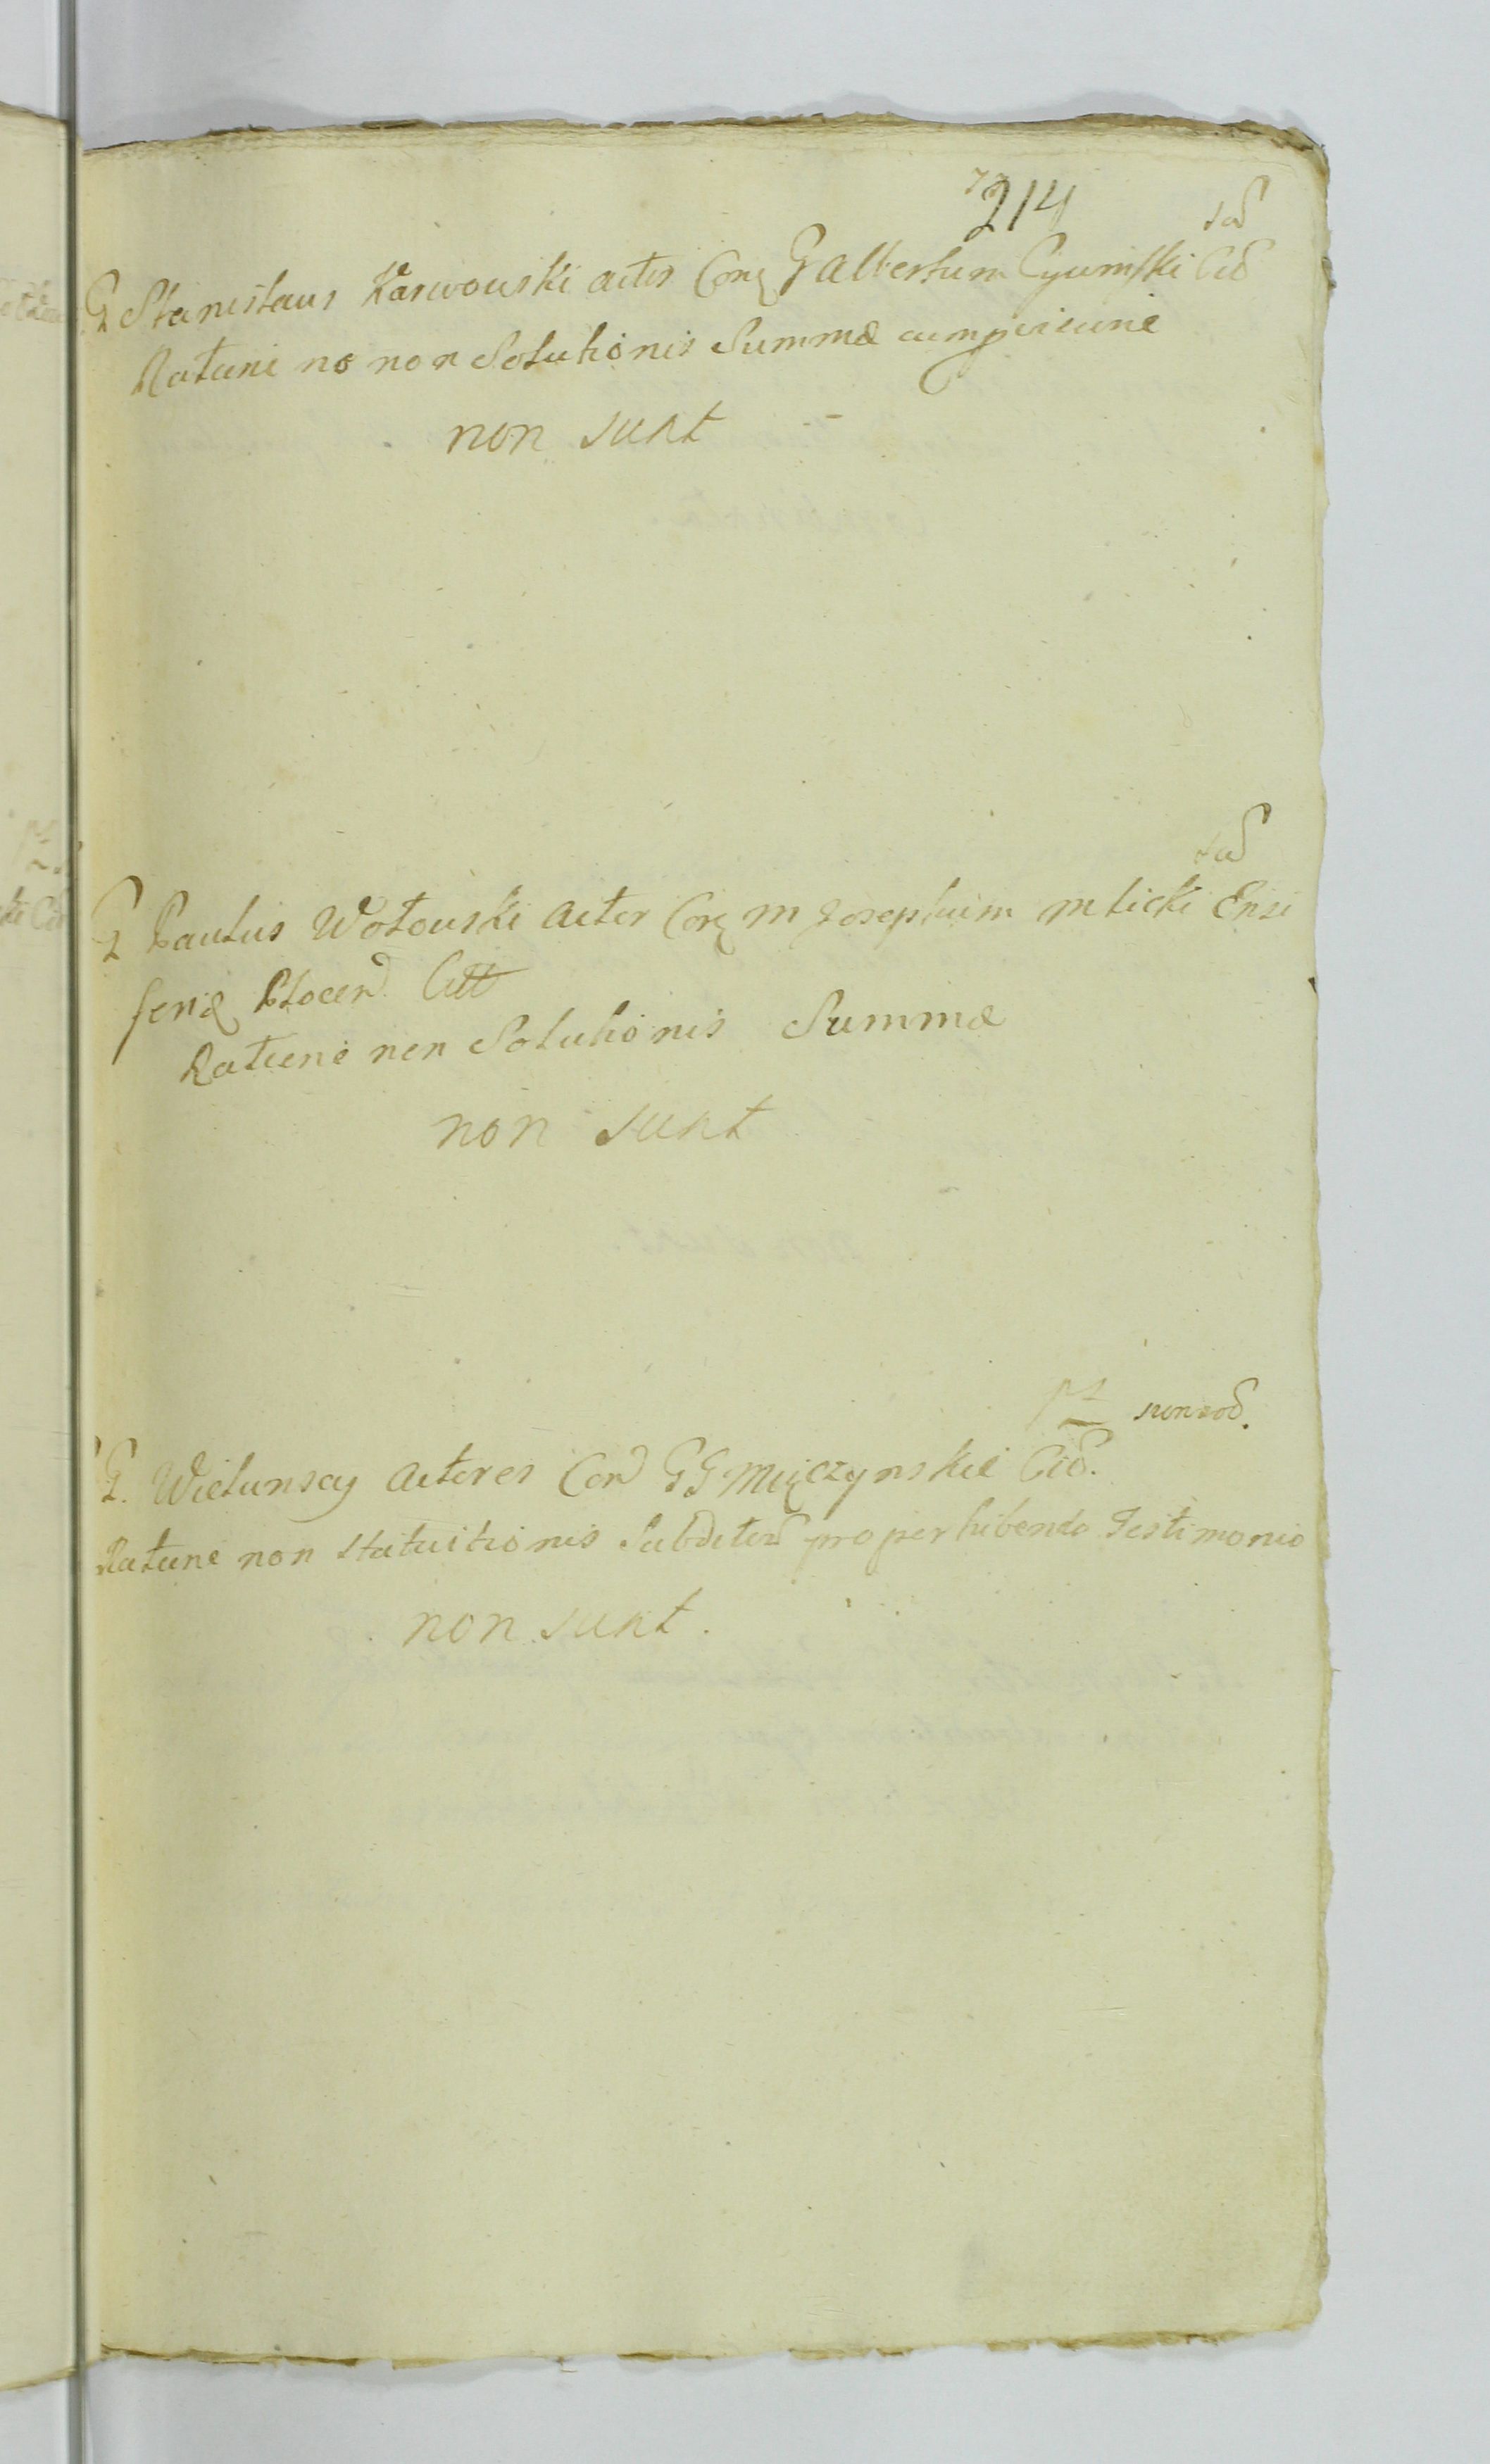 214
Sad
G Stanislaus Karwowski actor Con G Albertum Cyuminski Cit
Ratione no non Solutionis Summæ
non sunt
Sad
G Paulus Wołowski Actor Con M Josephum Mlicki Ensi
feru Plocen Citt
Ratione non Solutionis Summæ
non sunt
G. Wielunscy Actores Con GG Męczynskie Cit.
Ratione non statuitionis Subditor pro perhibendo Testimonio
non sunt.